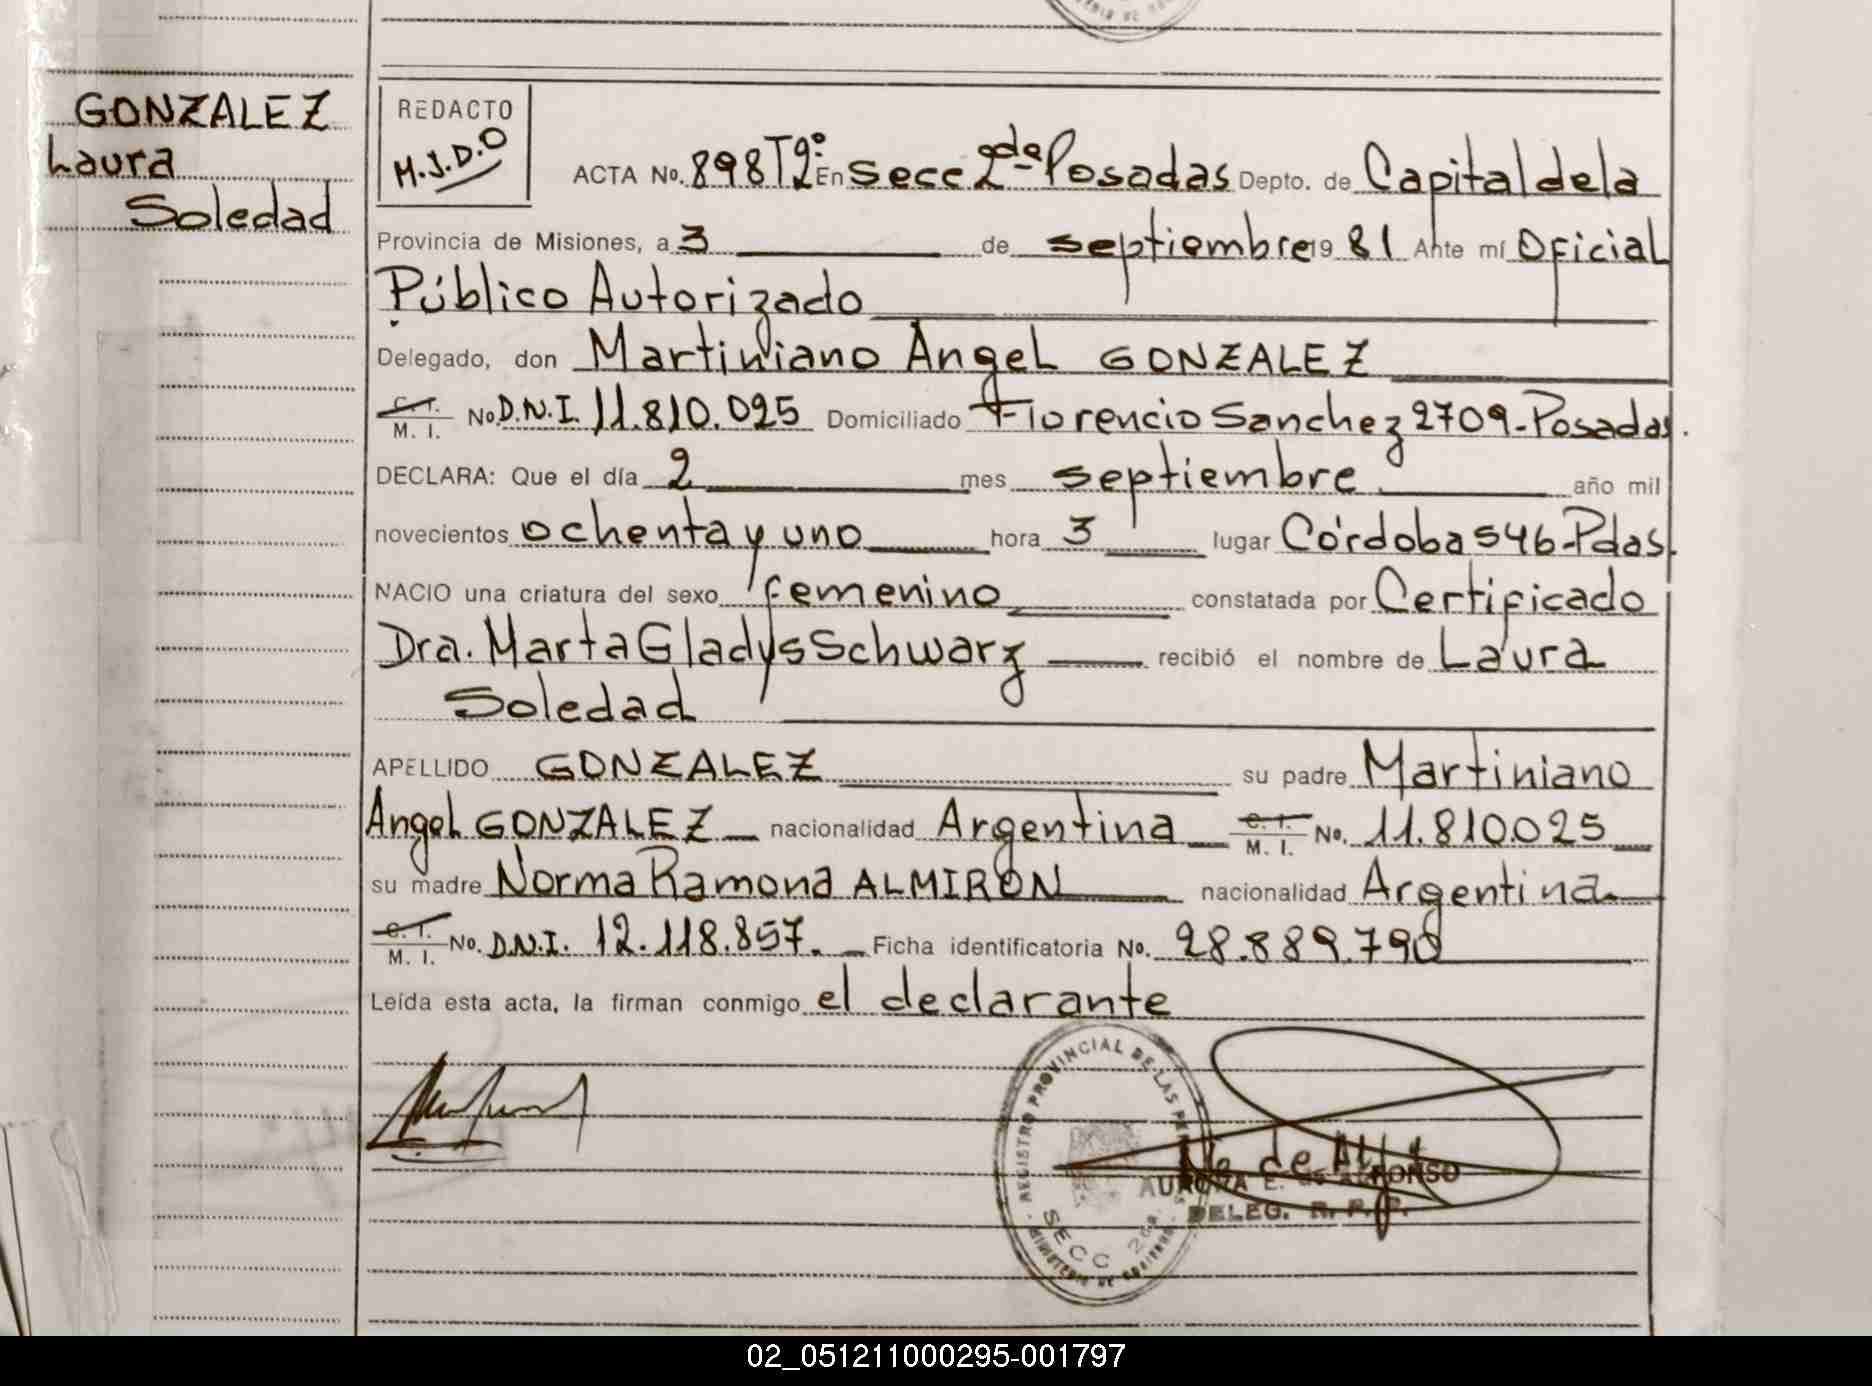 GONZALEZ
Laura
Soledad
REDACTO
M.J.D.O
ACTA No. 898 T2º En Secc 2da Posadas Depto. de Capital de la
Provincia de Misiones, a 3 de septiembre 19 81 Ante mí Oficial
Público Autorizado
Delegado, don Martiniano Angel GONZALEZ
C. I. M. I. No D.N.I. 11.810.025 Domiciliado Florencio Sanchez 2709-Posadas.
DECLARA: Que el día 2 mes septiembre año mil
novecientos ochenta y uno hora 3 lugar Córdoba 546-Pdas.
NACIO una criatura del sexo femenino constatada por Certificado
Dra. Marta Gladys Schwarz recibió el nombre de Laura
Soledad
APELLIDO GONZALEZ su padre Martiniano
Angel GONZALEZ nacionalidad Argentina C. I. M. I. No. 11.810.025
su madre Norma Ramona ALMIRON nacionalidad Argentina
C. I. M. I. No. D.N.I. 12.118.857. Ficha identificatoria No. 28.889.790
Leída esta acta, la firman conmigo el declarante
REGISTRO PROVINCIAL DE LAS
SECC 2da.
MINISTERIO DE GOBIERNO
AURORA E. de ALFONSO
DELEG. R. P. P.
02_051211000295-001797